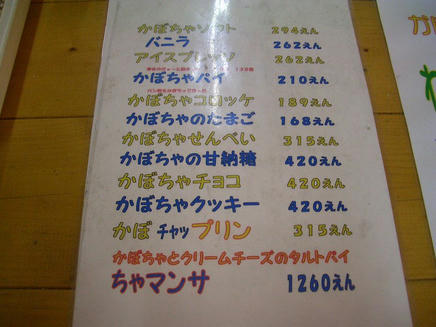 かぼちゃソフト 294えん
バニラ 262えん
アイスプレッソ 262えん
かぼちゃパイ 210えん
かぼちゃコロッケ 189えん
かぼちゃのたまご 168えん
かぼちゃせんべい 315えん
かぼちゃの甘納糖 420えん
かぼちゃチョコ 420えん
かぼちゃクッキー 420えん
かぼチャップリン 315えん
かぼちゃとクリームチーズのタルトパイ
ちゃマンサ 1260えん